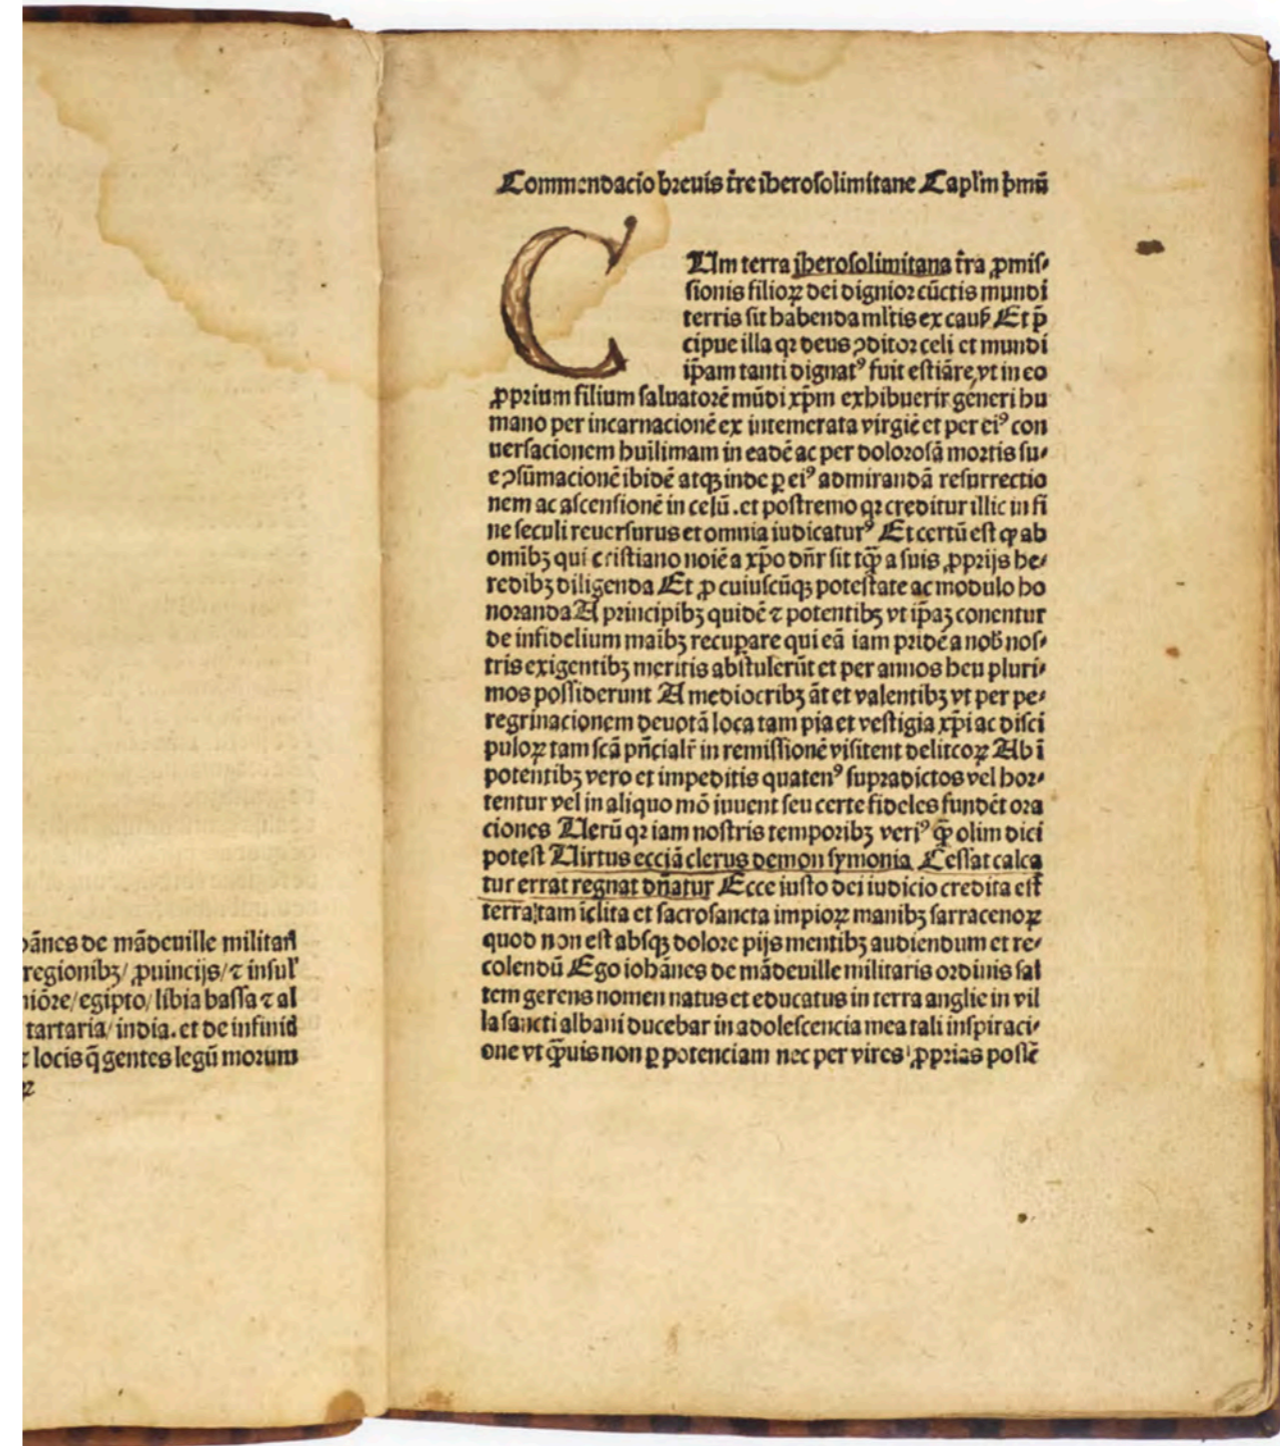 ãnes de mãdeuille militarꝭ
regionibꝫ/ ꝓuincijs/ ⁊ insul'
niõre/egipto/ libia bassa ⁊ al
tartaria/ india. et de infinid
locis q̃ gentes legũ morum
ꝝ
Commendacio breuis t̃re iherosolimitane Caplm̃ þmũ
CUm terra iherosolimitana t̃ra ꝓmis-
sionis filioꝝ dei dignior cũctis mundi
terris sit habenda ml̃tis ex cauß Et p̃
cipue illa qꝛ deus ↄditor celi et mundi
ip̃am tanti dignatꝰ fuit estiãre, vt in eo
ꝓprium filium saluatorẽ mũdi xp̃m exhibuerit generi hu
mano per incarnacionẽ ex intemerata virgiẽ et per eiꝰ con
uersacionem huĩlimam in eadẽ ac per dolorosã mortis su-
e ↄsũmacionẽ ibidẽ atqꝫ inde ꝑ eiꝰ admirandã resurrectio
nem ac ascensionẽ in celũ .et postremo qꝛ creditur illic in fi
ne seculi reuersurus et omnia iudicaturꝰ Et certũ est ꝙ ab
omĩbꝫ qui cristiano noiẽ a xp̃o dñr sit tꝙ̃ a suis ꝓprijs he-
redibꝫ diligenda Et ꝓ cuiuscũqꝫ potestate ac modulo ho
noranda A principibꝫ quidẽ ⁊ potentibꝫ vt ip̃aꝫ conentur
de infidelium maĩbꝫ recuꝑare qui eã iam pridẽ a nob̃ nos-
tris exigentibꝫ meritis abstulerũt et per annos heu pluri-
mos possiderunt A mediocribꝫ ãt et valentibꝫ vt per pe-
regrinacionem deuotã loca tam pia et vestigia xp̃i ac disci
puloꝝ tam scã pñcialr̃ in remissionẽ visitent delictoꝝ Ab ĩ
potentibꝫ vero et impeditis quatenꝰ supradictos vel hor-
tentur vel in aliquo mõ iuuent seu certe fideles fundẽt ora
ciones Uerũ qꝛ iam nostris temporibꝫ veriꝰ ꝙ̃ olim dici
potest Uirtus ecciã clerus demon symonia Cessat calca
tur errat regnat dñatur Ecce iusto dei iudicio credita est
terra tam ĩclita et sacrosancta impioꝝ manibꝫ sarracenoꝝ
quod non est absqꝫ dolore pijs mentibꝫ audiendum et re-
colendũ Ego iohãnes de mãdeuille militaris ordinis sal
tem gerens nomen natus et educatus in terra anglie in vil
la sancti albani ducebar in adolescencia mea tali inspiraci-
one vt ꝙ̃uis non ꝑ potenciam nec per vires ꝓprias possẽ